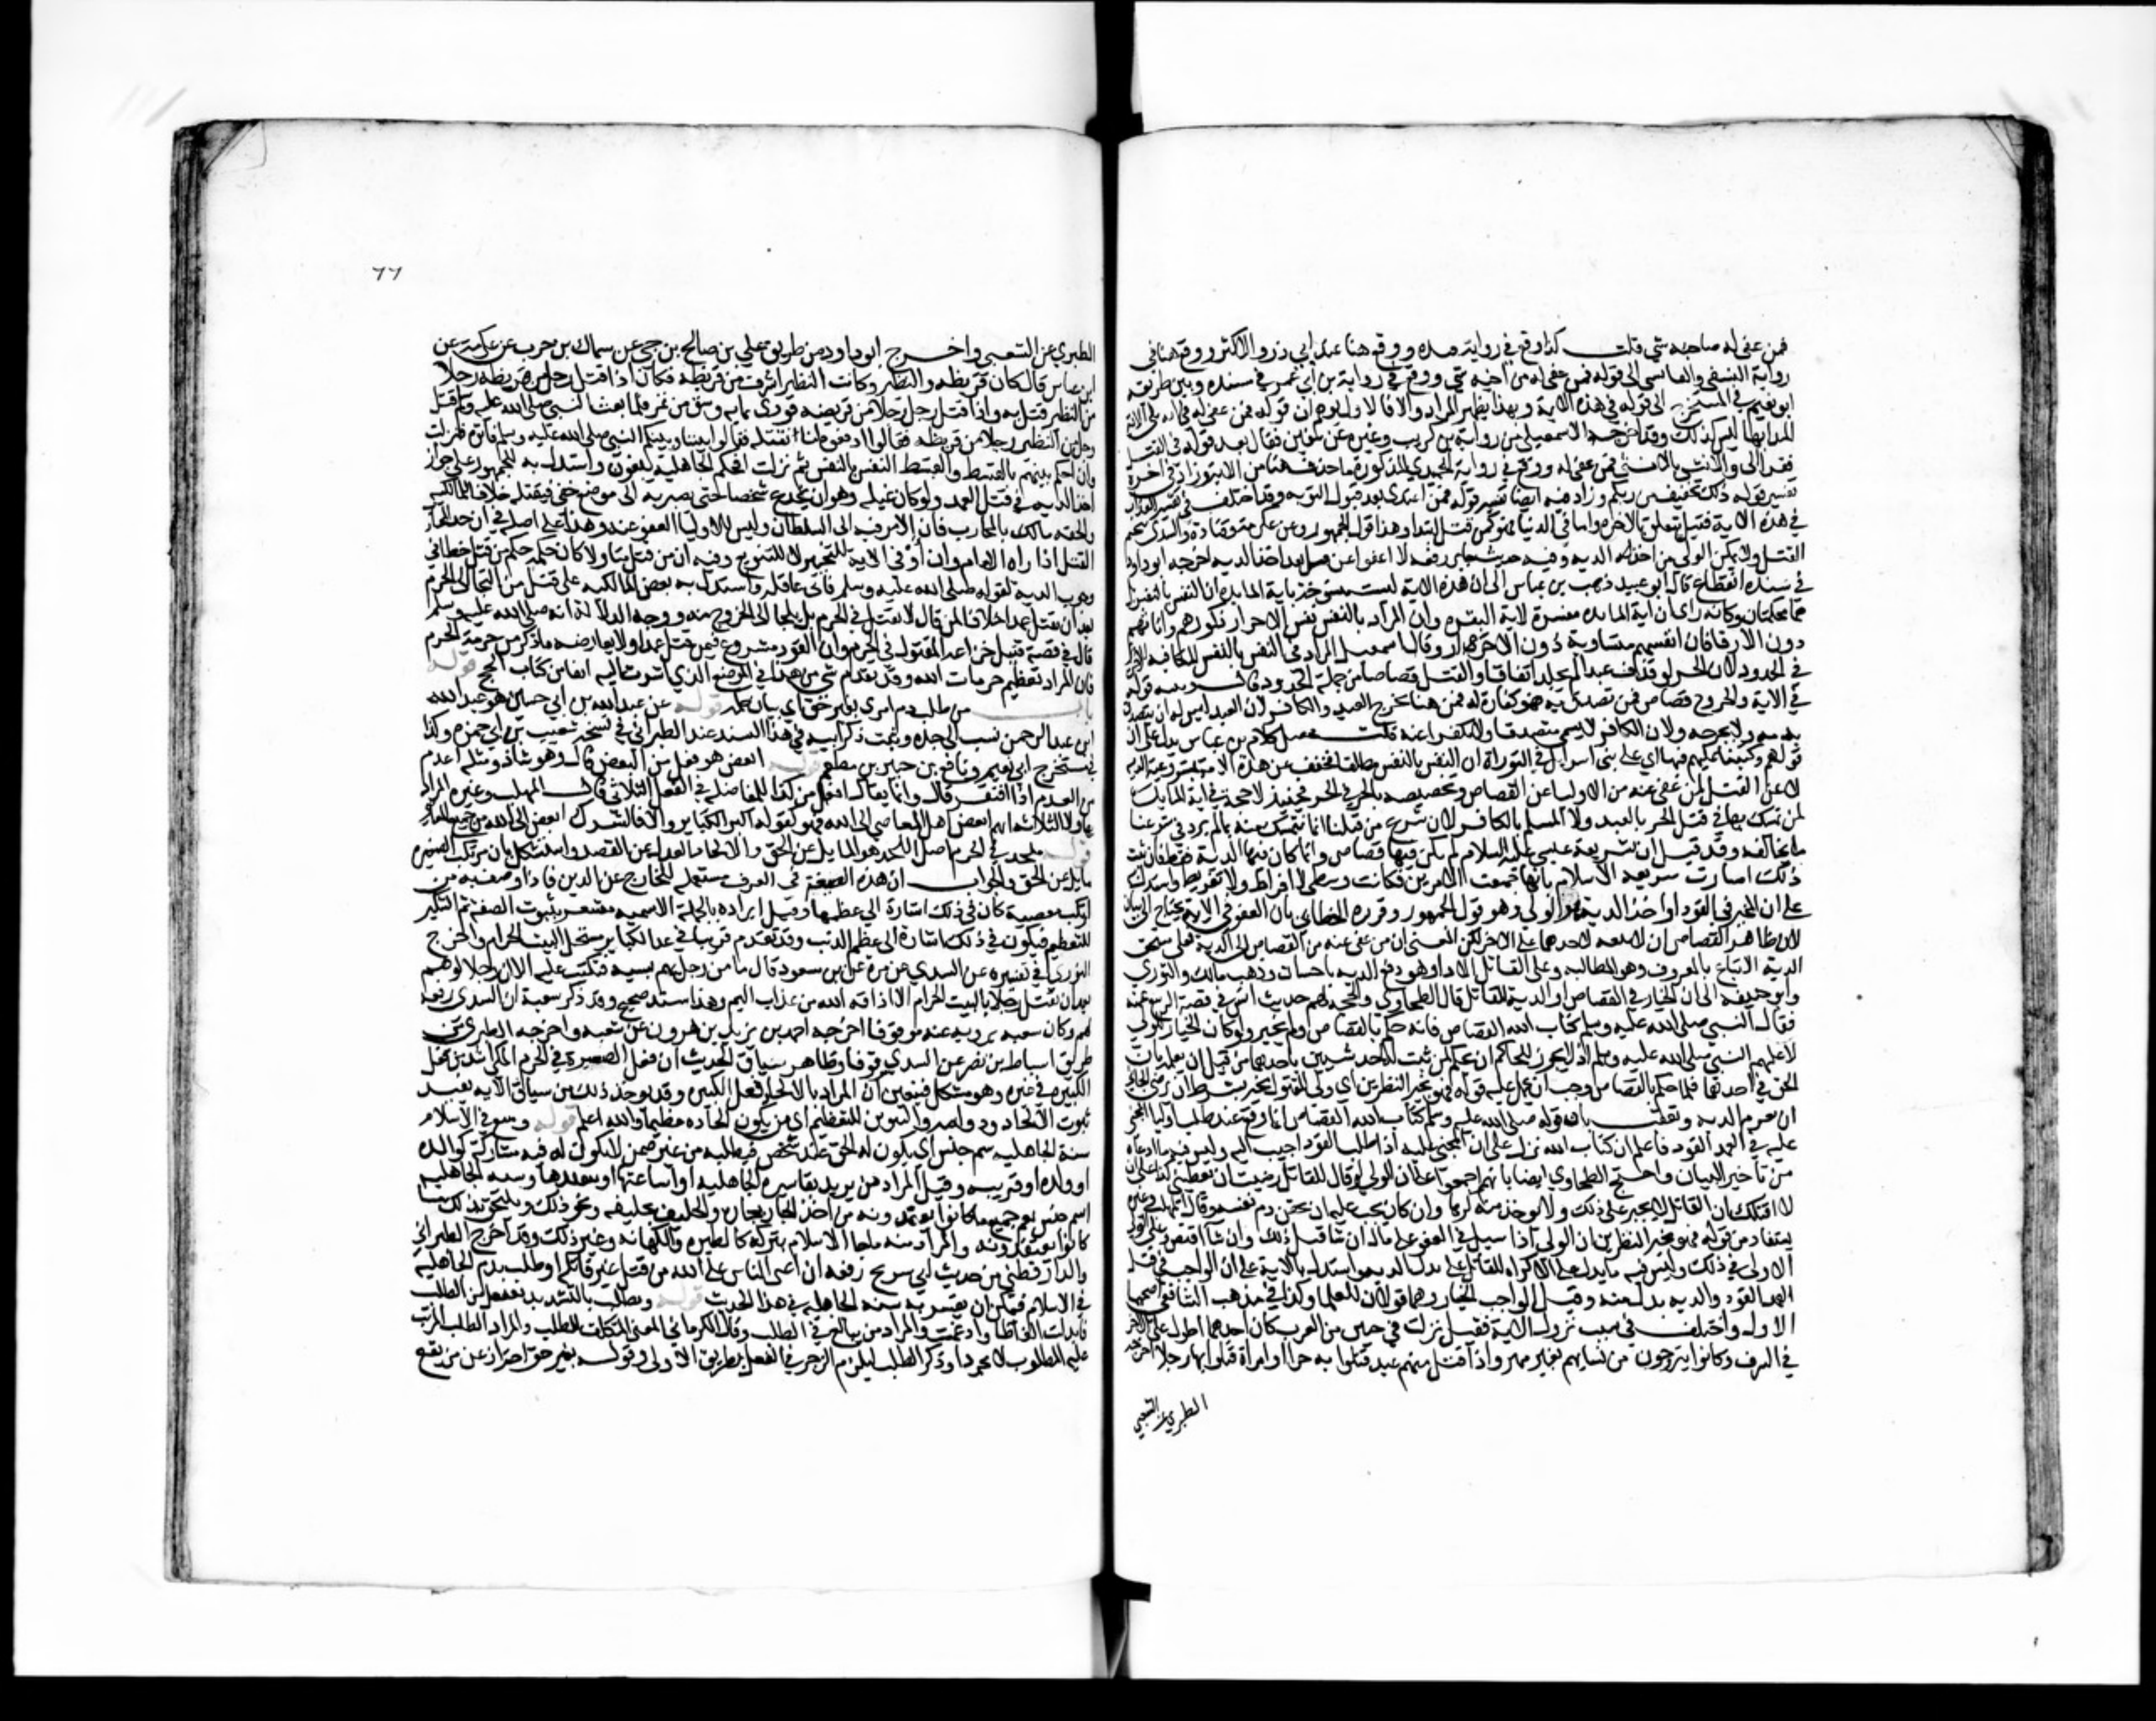 فمن عفى له صاحبه شي قلت كذا وقع في رواية عبده ووقع هنا عند ابي ذر والاكثر ووقع هنا في
رواية النسفي والقابسي الى قوله فمن عفي له من اخيه شي ووقع في رواية بن ابي عمر في مسنده ومن طريقه
ابو نعيم في المستخرج الى قوله في هذه الاية وبهذا يظهر المراد والا فالاول يوهم ان قوله فمن عفي له في اية تلي الاية
المبدا بها وليس كذلك وقد اخرجه الاسمعيلي من رواية ابي كريب وغيره عن سفين فقال بعد قوله في القتلى
فقرا الى والانثى بالانثى فمن عفي له ووقع في رواية الحميدي المذكورة ما حذف هنا من الابتوزاد في اخره
تفسير قوله ذلك تخفيف من ربكم وزاد فيه ايضا تفسير قوله فمن اعتدى بعد قبول الدية وقد اختلف في تفسير العذاب
في هذه الاية فقيل يتعلق بالاخره واما في الدنيا فهو كمن قتل ابتدا وهذا قول الجمهور وعن عكرمة وقتادة والسدي يتحتم
القتل ولا يمكن الولي من اخذ الديه وفيه حديث جابر رفعه لا اعفوا عن من قتل بعد اخذ الديه اخرجه ابو داود
في سنده انقطاع قال ابو عبيد ذهب بن عباس الى ان هذه الاية ليست منسوخة باية المايده ان النفس بالنفس بل
هما محكمتان وكانه راى ان اية المايده مفسرة لاية البقره وان المراد بالنفس نفس الاحرار ذكورهم واناثهم
دون الارقا فان انفسهم متساوية دون الاحرار وقال اسمعيل المراد في النفس بالنفس المكافيه للاخرى
في الحدود لان الحر لو قذف عبدا لم يجلد اتفاقا والقتل قصاصا من جملة الحدود قال وبينه قوله
في الاية والجروح قصاص فمن تصدق به فهو كفاره له فمن هنا يخرج العبد والكافر لان العبد ليس له ان يتصدق
بدمه ولا بجرحه ولان الكافر لا يسمى متصدقا ولا مكفرا عنه قلت محصل كلام بن عباس يدل على ان
قولهم وكتبنا عليهم فيها اي على بني اسرائيل في التوراة ان النفس بالنفس مطلقا فخفف عن هذه الامة بمشروعية الديه
بدلا عن القتل لمن عفى عنه من الاوليا عن القصاص وبتخصيصه بالحر في الحر فحينئذ لا حجة في اية المايدة
لمن تمسك بها في قتل الحر بالعبد ولا المسلم بالكافر لان شرع من قبلنا انما نتمسك منه بما لم يرد في شرعنا
ما يخالفه وقد قيل ان شريعة عيسى عليه السلام لم يكن فيها قصاص وانما كان فيها الدية فقط فان ثبت
ذلك امتازت شريعه الاسلام بانها جمعت الامرين فكانت وسطى لا افراط ولا تفريط واستدل
على ان المخير في القود او اخذ الديه هو الولي وهو قول الجمهور وقرره الخطابي بان العفو في الاية يحتاج الى بيان
لان ظاهر القصاص ان لا تبعه لاحدهما على الاخر لكن المعنى ان من عفي عنه من القصاص الى الدية فعلى مستحق
الدية الاتباع بالمعروف وهو المطالبه وعلى القاتل الادا وهو دفع الديه باحسان وذهب مالك والثوري
وابو حنيفه الى ان الخيار في القصاص او الدية للقاتل قال الطحاوي والحجة لهم حديث انس في قصة الربيع عمته
فقال النبي صلى الله عليه وسلم كتاب الله القصاص فانه حكم بالقصاص ولم يخير ولو كان الخيار للولي
لاعلمهم النبي صلى الله عليه وسلم اذ لا يجوز للحاكم ان يحكم لمن ثبت له احد شيئين باحدهما من قبل ان يعلمه بان
الحق في احدهما فلما حكم بالقصاص وجب ان يحمل عليه قوله فهو بخير النظرين اي ولي المقتول مخير بشرط ان يرضى الجاني
ان يغرم الديه وتعقب بان قوله صلى الله عليه وسلم كتاب الله القصاص انما وقع عند طلب اوليا المجني
عليه في العمد القود فاعلم ان كتاب الله نزل على ان المجني عليه اذا طلب القود اجيب اليه وليس فيه ما ادعاه
من تاخير البيان واحتج الطحاوي ايضا بانهم اجمعوا على ان الولي لو قال للقاتل رضيت ان تعطيني كذا على ان
لا اقتلك ان القاتل لا يجبر على ذلك ولا يوخذ منه كرها وان كان يجب عليه ان يحقن دم نفسه وقال المهلب وغيره
يستفاد من قوله فهو بخير النظرين ان الولي اذا سيل في العفو على مال ان شا قبل ذلك وان شا اقتص وعلى الولي
الاولى في ذلك وليس فيه ما يدل على الاكراه للقاتل على بذل الديه واستدل بالاية على ان الواجب في قتل
العمد القود والديه بدل منه وقيل الواجب الخيار وهما قولان للعلما وكذا في مذهب الشافعي اصحهما
الاول واختلف في سبب نزول الاية فقيل نزلت في حيين من العرب كان لاحدهما طول على الاخر
في الشرف وكانوا يتزوجون من نسايهم بغير مهر واذا قتل منهم عبد قتلوا به حرا او امراة قتلوا بها رجلا اخرجه
الطبري عن الشعبي
٦٦
الطبري عن الشعبي واخرج ابو داود من طريق علي بن صالح بن حي عن سماك بن حرب عن عكرمة عن
ابن عباس قال كان قريظه والنظير وكانت النظير اشرف من قريظة فكان اذا قتل رجل من قريظه رجلا
من النظير قتل به واذا قتل رجل رجلا من قريضه فودي بمايه وسق من تمر فلما بعث النبي صلى الله عليه وسلم قتل
رجل من النظير رجلا من قريظه فقالوا ادفعوه لنا نقتله فقالوا بيننا وبينكم النبي صلى الله عليه وسلم فاتوه فنزلت
وان احكم بينهم بالقسط والقسط النفس بالنفس ثم نزلت افحكم الجاهلية يبغون واستدل به للجمهور على جواز
اخذ الديه في قتل العمد ولو كان غيله وهو ان يخدع شخصا حتى يصير به الى موضع خفي فيقتله خلافا للمالكيه
والحقه مالك بالمحارب فان الامر فيه الى السلطان وليس للاوليا العفو عنه وهذا على اصله في ان حد المحارب
القتل اذا راه الامام وان او في الاية للتخيير لا للتنويع وفيه ان من قتل متاولا كان حكمه حكم من قتل خطا في
وجوب الدية لقوله صلى الله عليه وسلم فاني عاقله واستدل به بعض المالكيه على قتل من التجا الى الحرم
بعد ان يقتل عمدا خلافا لمن قال لا يقتل في الحرم بل يلجا الى الخروج منه ووجه الدلالة انه صلى الله عليه وسلم
قاله في قصة قتيل خزاعه المقتول في الحرم وان القود مشروع فيمن قتل عمدا ولا يعارضه ما ذكر من حرمة الحرم
فان المراد تعظيم حرمات الله وقد تقدم شي من هذا في الموضع الذي اشرت اليه انفا من كتاب الحج قوله
باب من طلب دم امري بغير حق اي بيان حكمه قوله عن عبد الله بن ابي حسين هو عبد الله
ابن عبد الرحمن نسب الى جده وثبت ذكر ابيه في هذا السند عند الطبراني في نسخة شعيب بن ابي حمزه وكذا
في مستخرج ابي نعيم ونافع بن جبير بن مطعم قوله ابغض هو فعل من البغض قال وهو شاذ ومثله اعدم
من العدم اذا افتقر قال وانما يقال افعل من كذا للمفاضلة في الفعل الثلاثي قال المهلب وغيره المراد
بهاولا الثلاثه انهم ابغض اهل المعاصي الى الله فهو كقوله اكبر الكباير والا فالشرك ابغض الى الله من جميع المعاصي
قوله ملحد في الحرم اصل الملحد هو المايل عن الحق والالحاد العدول عن القصد واستشكل بان مرتكب الصغيره
مايل عن الحق والجواب ان هذه الصيغة في العرف مستعمله للخارج عن الدين فاذا وصف به من
ارتكب معصية كان في ذلك اشارة الى عظمها وقيل ايراده بالجملة الاسميه مشعر بثبوت الصفة ثم التنكير
للتعظيم فيكون في ذلك اشارة الى عظم الذنب وقد تقدم قريبا في عد الكباير مستحل البيت الحرام واخرج
الثوري في تفسيره عن السدي عن مرة عن بن مسعود قال ما من رجل يهم بسيه فتكتب عليه الا ان رجلا لو هم
بعد ان يقتل رجلا بالبيت الحرام الا اذاقه الله من عذاب اليم وهذا سند صحيح وقد ذكر شعبة ان السدي رفعه
لهم وكان شعبه يرويه عنه موقوفا اخرجه احمد بن يزيد بن هرون عن شعبه واخرجه الطبري من
طريق اسباط بن نصر عن السدي موقوفا وظاهر سياق الحديث ان فعل الصغيرة في الحرم المكي اشد من فعل
الكبيره في غيره وهو مشكل فيتعين ان المراد بالالحاد فعل الكبيره وقد يوخذ ذلك من سياق الايه يفيد
ثبوت الالحاد ودوامه والتنوين للتعظيم اي من يكون الحاده عظيما والله اعلم قوله ومبتغ في الاسلام
سنة الجاهليه اي يكون له الحق عند شخص فيطلبه من غيره ممن لا يكون له فيه مشاركة كوالده
او ولده او قريبه وقيل المراد من يريد بقا سيرة الجاهليه او اشاعتها او تنفيذها وسنه الجاهليه
اسم جنس يعم جميع ما كانوا يعتمدونه من اخذ الجار بجاره والحليف بحليفه ونحو ذلك ويلتحق بذلك ما
كانوا يعتقدونه والمراد منه ما جا الاسلام بتركه كالطيره والكهانه وغير ذلك وقد اخرج الطبراني
والدارقطني من حديث ابي سريح رفعه ان اعتى الناس على الله من قتل غير قاتله او طلب بدم الجاهليه
في الاسلام فيمكن ان يفسر به سنه الجاهليه في هذا الحديث قوله ومطلب بالتشديد مفتعل من الطلب
فابدلت التا طا وادغمت والمراد من يبالغ في الطلب وقال الكرماني المعنى المتكلف للطلب والمراد الطلب المرتب
عليه المطلوب لا مجردا وذكر الطلب ليلزم الزجر في الفعل بطريق الاولى وقوله بغير حق احتراز عن من يقع